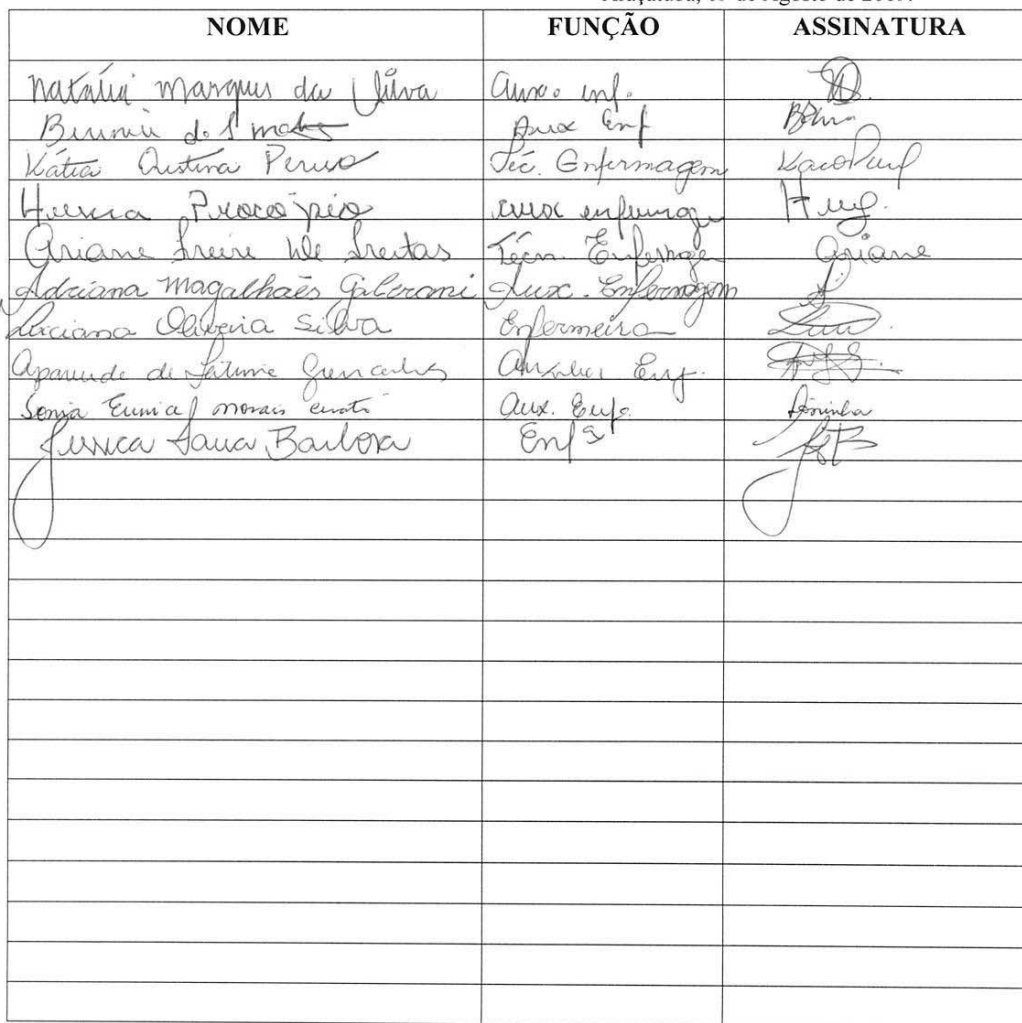 NOME FUNÇÃO ASSINATURA
Natália Marques da Silva Aux. inf.
Aux Enf
Kátia Cristina Téc. Enfermagem
Procópio aux enfermagem
Ariane Freire de Freitas Técn. Enfermagem Ariane
Adriana Magalhães Giberoni Aux. Enfermagem
Luciana Oliveira Silva Enfermeira
Aparecida de Fátima Gonçalves Auxiliar Enf.
Sonia Eunice morais Aux. Enfe. Soninha
Jessica Barbosa Enfª